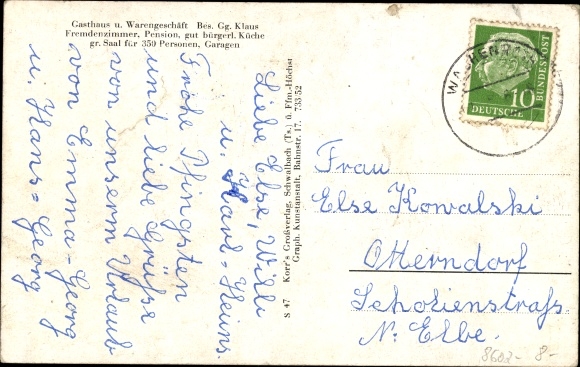 Gasthaus u. Warengeschäft Bes. Gg. Klaus
Fremdenzimmer, Pension, gut bürgerl. Küche
gr. Saal für 350 Personen, Garagen
Liebe Else, Willi
u. Karl=Heins.
Frohe Pfingsten
und liebe Grüße
von unserm Urlaub
von Emma-Georg
u. Hans=Georg
S 47 Korr's Großverlag, Schwalbach (Ts.) ü. Ffm.-Höchst
Graph. Kunstanstalt, Bahnstr. 17. 733/52
DEUTSCHE
BUNDESPOST
10
Frau
Else Kowalski
Otterndorf
N. Elbe.
8602- 8-